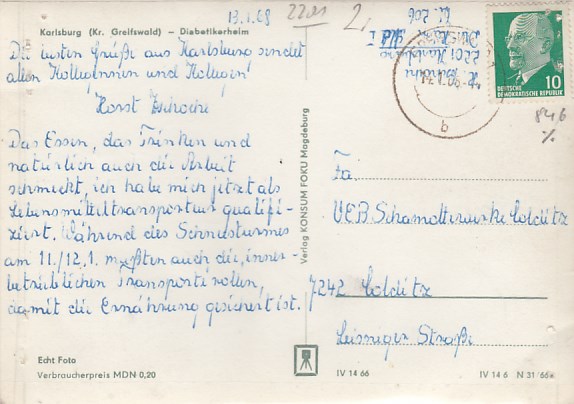 13.1.68
22.01
Karlsburg (Kr. Greifswald) — Diabetikerheim
Die ersten Grüße aus Karlsburg sendet
allen Kolleginnen und Kollegen
Horst
Das Essen, das Trinken und
natürlich auch die Arbeit
schmeckt, ich habe mich jetzt als
Lebensmitteltransporteur qualifi-
ziert. Während des Schneesturmes
am 11./12.1. mußten auch die inner-
betrieblichen Transporte rollen,
damit die Ernährung gesichert ist.
Echt Foto
Verbraucherpreis MDN 0,20
Verlag KONSUM FOKU Magdeburg
2201 Karlsburg
DEUTSCHE
DEMOKRATISCHE REPUBLIK
10
b
846
%
Fa.
VEB Schamottewerke Colditz
7242 Colditz
Leisniger Straße
IV 14 66
IV 14 6 N 31/66e